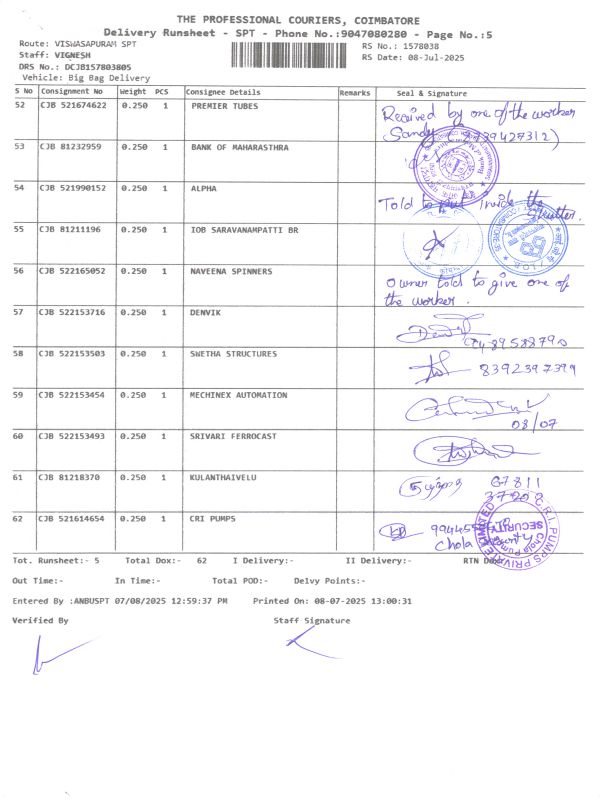 THE PROFESSIONAL COURIERS, COIMBATORE
Delivery Runsheet - SPT - Phone No.:9047080280 - Page No.:5
Route: VISWASAPURAM SPT
RS No.: 1578038
Staff: VIGNESH
RS Date: 08-Jul-2025
DRS No.: DCJB157803805
Vehicle: Big Bag Delivery
S No Consignment No Weight PCS Consignee Details Remarks Seal & Signature
52 CJB 521674622 0.250 1 PREMIER TUBES Received by one of the worker
Sandy (9739427312)
53 CJB 81232959 0.250 1 BANK OF MAHARASTHRA
54 CJB 521990152 0.250 1 ALPHA Told to put inside the
Shutter.
55 CJB 81211196 0.250 1 IOB SARAVANAMPATTI BR
56 CJB 522165052 0.250 1 NAVEENA SPINNERS Owner told to give one of
the worker.
57 CJB 522153716 0.250 1 DENVIK
58 CJB 522153503 0.250 1 SWETHA STRUCTURES 8392397399
59 CJB 522153454 0.250 1 MECHINEX AUTOMATION
08/07
60 CJB 522153493 0.250 1 SRIVARI FERROCAST
61 CJB 81218370 0.250 1 KULANTHAIVELU 67811
37208
62 CJB 521614654 0.250 1 CRI PUMPS
Chola Security
C.R.I. PUMPS PRIVATE LIMITED
SECURITY
Tot. Runsheet:- 5 Total Dox:- 62 I Delivery:- II Delivery:- RTN Dox:-
Out Time:- In Time:- Total POD:- Delvy Points:-
Entered By :ANBUSPT 07/08/2025 12:59:37 PM Printed On: 08-07-2025 13:00:31
Verified By Staff Signature